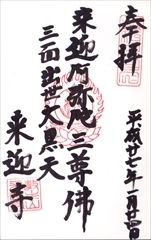 奉拝
平成廿七年一月廿四日
来迎阿弥陀三尊佛
三面出世大黒天
来迎寺